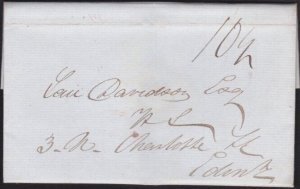 10½
Davidson Esq
W S
3. N. Charlotte St
Edinb